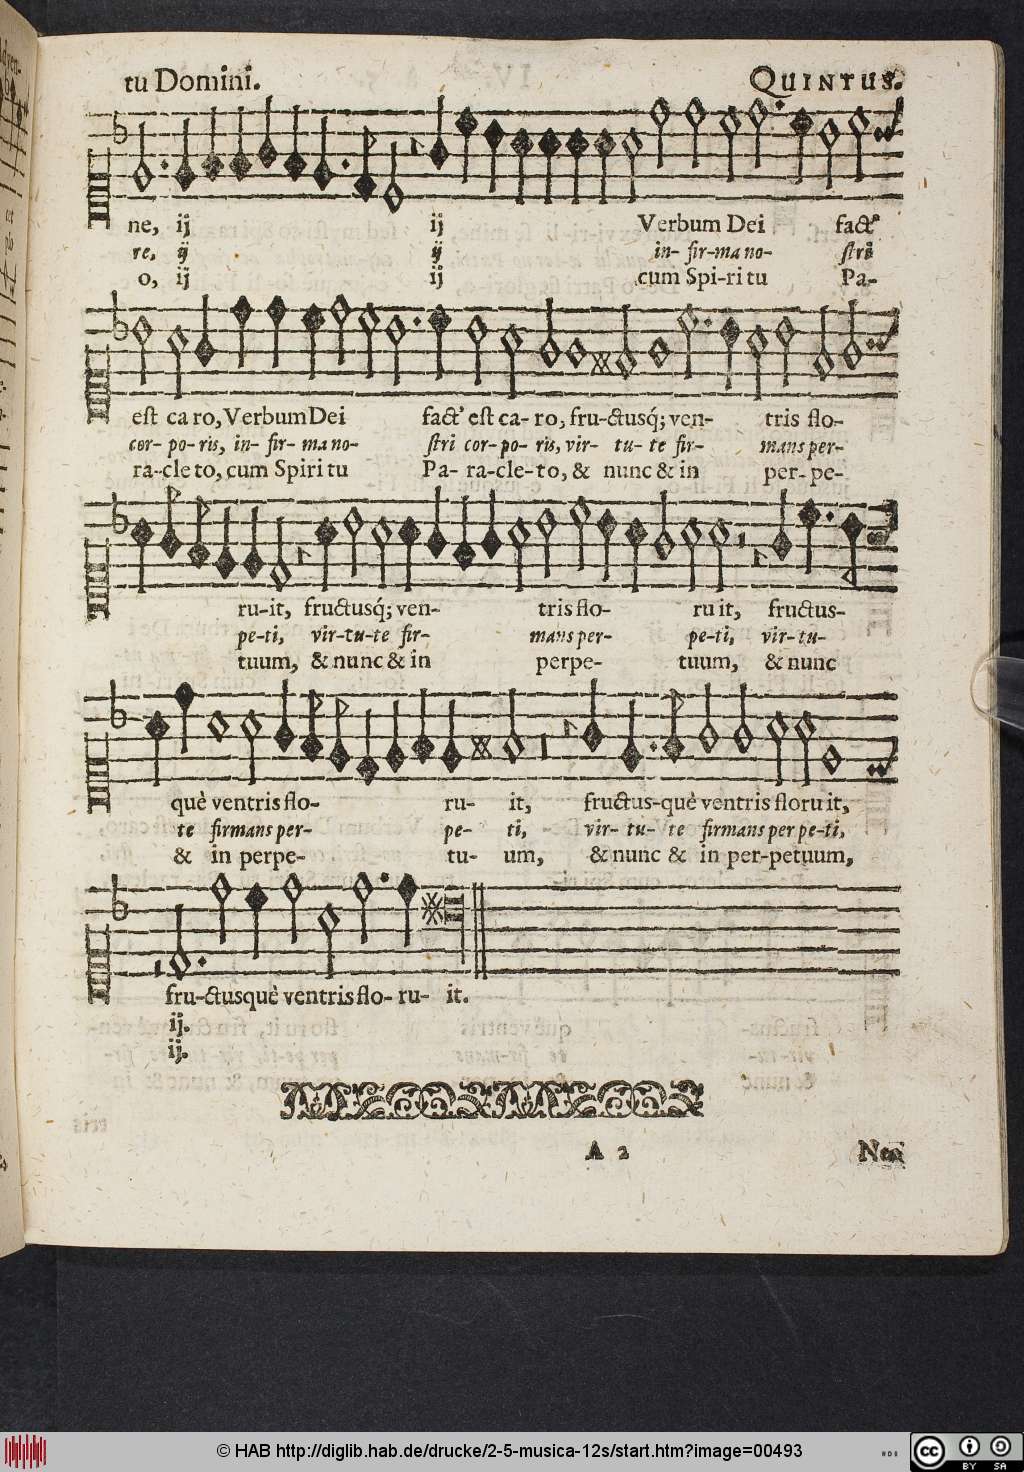 tu Domini. QUINTUS.
ne, ij ij Verbum Dei fact⁹
re, ij ij in- fir-ma no- stri
o, ij ij cum Spi-ri tu Pa-
est ca ro, Verbum Dei fact⁹ est ca- ro, fru-ctusq́; ven- tris flo-
cor- po- ris, in- fir- ma no- stri cor- po- ris, vir- tu- te fir- mans per-
ra-cle to, cum Spiri tu Pa- ra-cle-to, & nunc & in per- pe-
ru-it, fructusq́; ven- tris flo- ru it, fructus-
pe-ti, vir-tu-te fir- mans per- pe-ti, vir- tu-
tuum, & nunc & in perpe- tuum, & nunc
què ventris flo- ru- it, fructus-què ventris floru it,
te firmans per- pe- ti, vir- tu- te firmans per pe-ti,
& in perpe- tu- um, & nunc & in per-petuum,
fru-ctusquè ventris flo- ru- it.
ij.
ij.
A 2
© HAB http://diglib.hab.de/drucke/2-5-musica-12s/start.htm?image=00493
cc BY SA